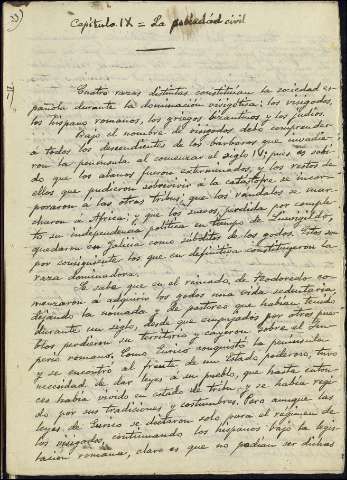 Capítulo IX = La sociedad civil
Cuatro razas distintas constituían la sociedad es-
pañola durante la dominación visigótica: los visigodos,
los hispano romanos, los griegos bizantinos y los judíos.
Bajo el nombre de visigodos debo comprender
á todos los descendientes de los bárbaros que invadie-
ron la península al comenzar el siglo IV; pues es sabi-
do que los alanos fueron exterminados, y los restos de
ellos que pudieron sobrevivir á la catástrofe se incor-
poraron á las otras tribus, que los vándalos se mar-
charon á África; y que los suevos, perdida por comple-
to su independencia política en tiempo de Leovigildo,
quedaron en Galicia como súbditos de los godos. Estos son
por consiguiente los que en definitiva constituyeron la
raza dominadora.
Se sabe que en el reinado de Teodoredo co-
menzaron á adquirir los godos una vida sedentaria
dejando la nomada y de pastores que habían tenido
durante un siglo, desde que empujados por otros pue-
blos perdieron su territorio y cayeron sobre el Im-
perio romano. Como Eurico conquistó la península
y se encontró al frente de un Estado poderoso, tuvo
necesidad de dar leyes á su pueblo, que hasta enton-
ces había vivido en estado de tribu y se había regi-
do por sus tradiciones y costumbres. Pero aunque las
leyes de Eurico se dictaron solo para el régimen de
los visigodos, continuando los hispanos bajo la legis-
lación romana, claro es que no podían ser dichas